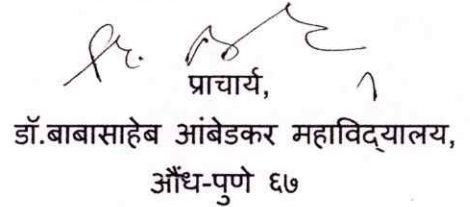 प्राचार्य,
डॉ.बाबासाहेब आंबेडकर महाविद्यालय,
औंध-पुणे ६७